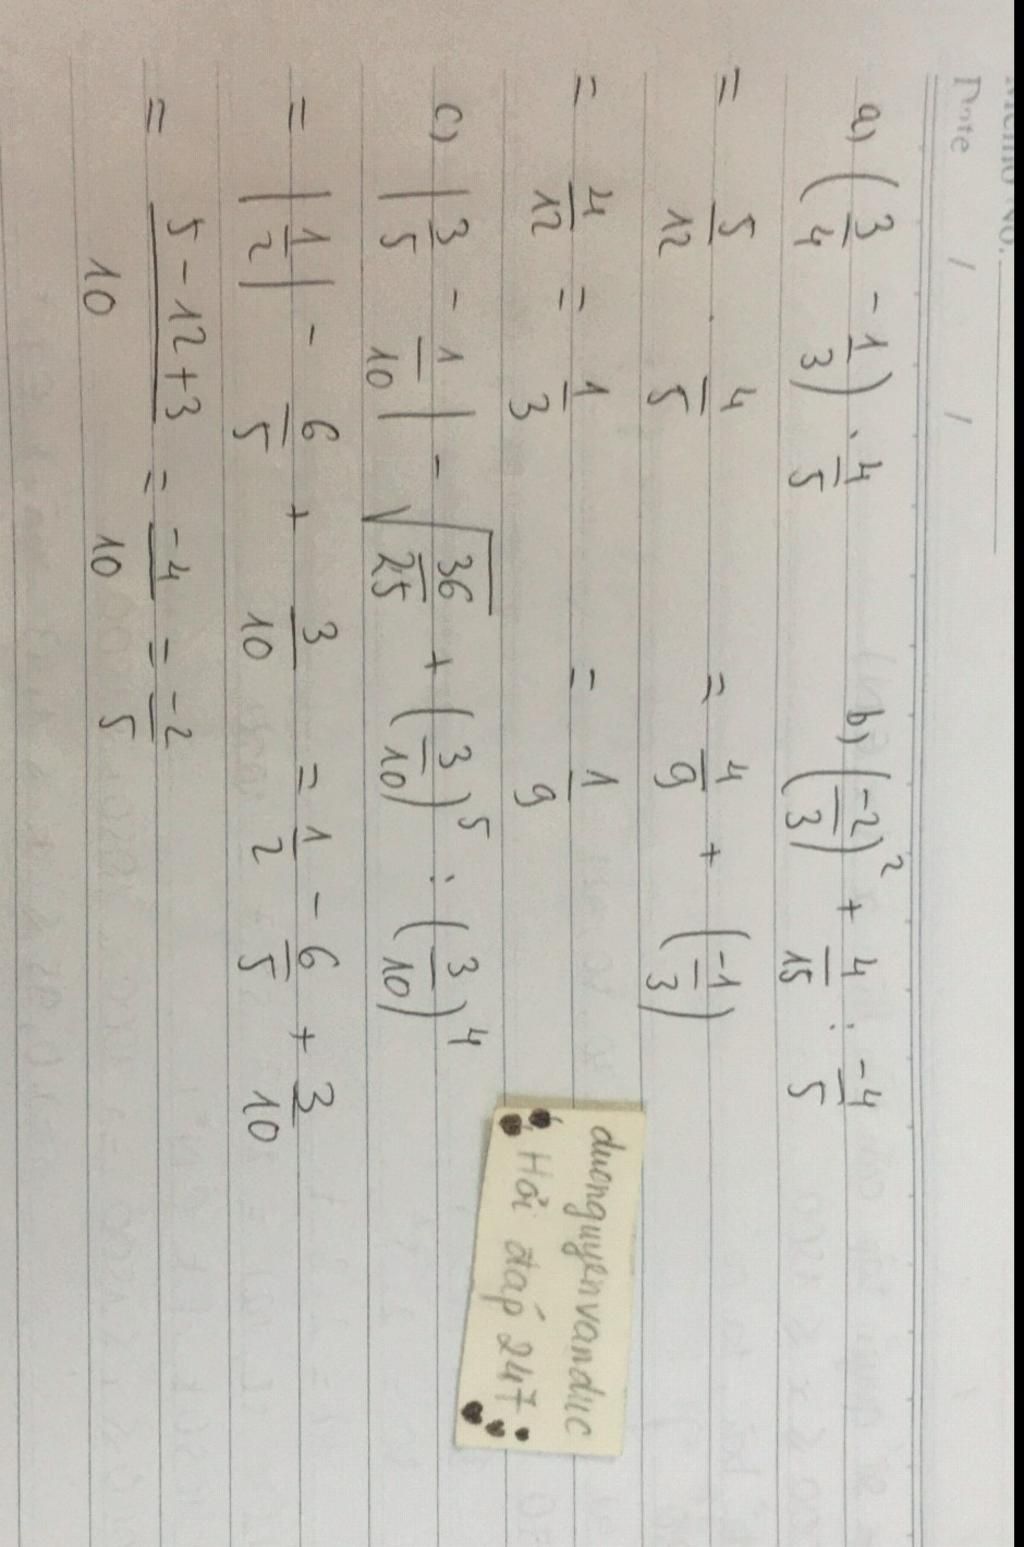 Memo No.
Date / /
a) (3/4 - 1/3) . 4/5 b) (-2/3)² + 4/15 : -4/5
= 5/12 . 4/5 = 4/9 + (-1/3)
= 4/12 = 1/3 = 1/9
c) |3/5 - 1/10| - √36/25 + (3/10)⁵ : (3/10)⁴
= |1/2| - 6/5 + 3/10 = 1/2 - 6/5 + 3/10
= 5-12+3/10 = -4/10 = -2/5
duonguyenvanduc
Hỏi đáp 247